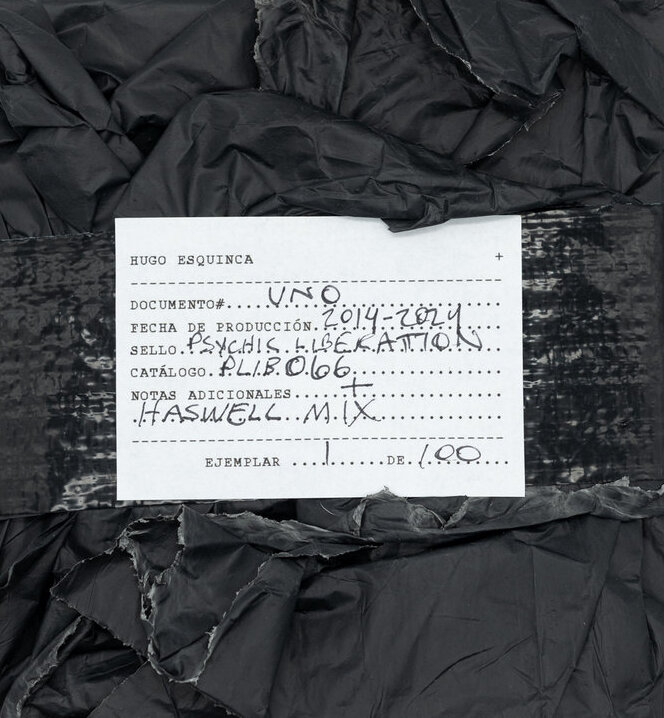 HUGO ESQUINCA +
DOCUMENTO#.... UNO
FECHA DE PRODUCCIÓN. 2014-2024
SELLO. PSYCHIC LIBERATION
CATÁLOGO. P.L.I.B.066
NOTAS ADICIONALES... +
HASWELL MIX
EJEMPLAR ...1......DE./100